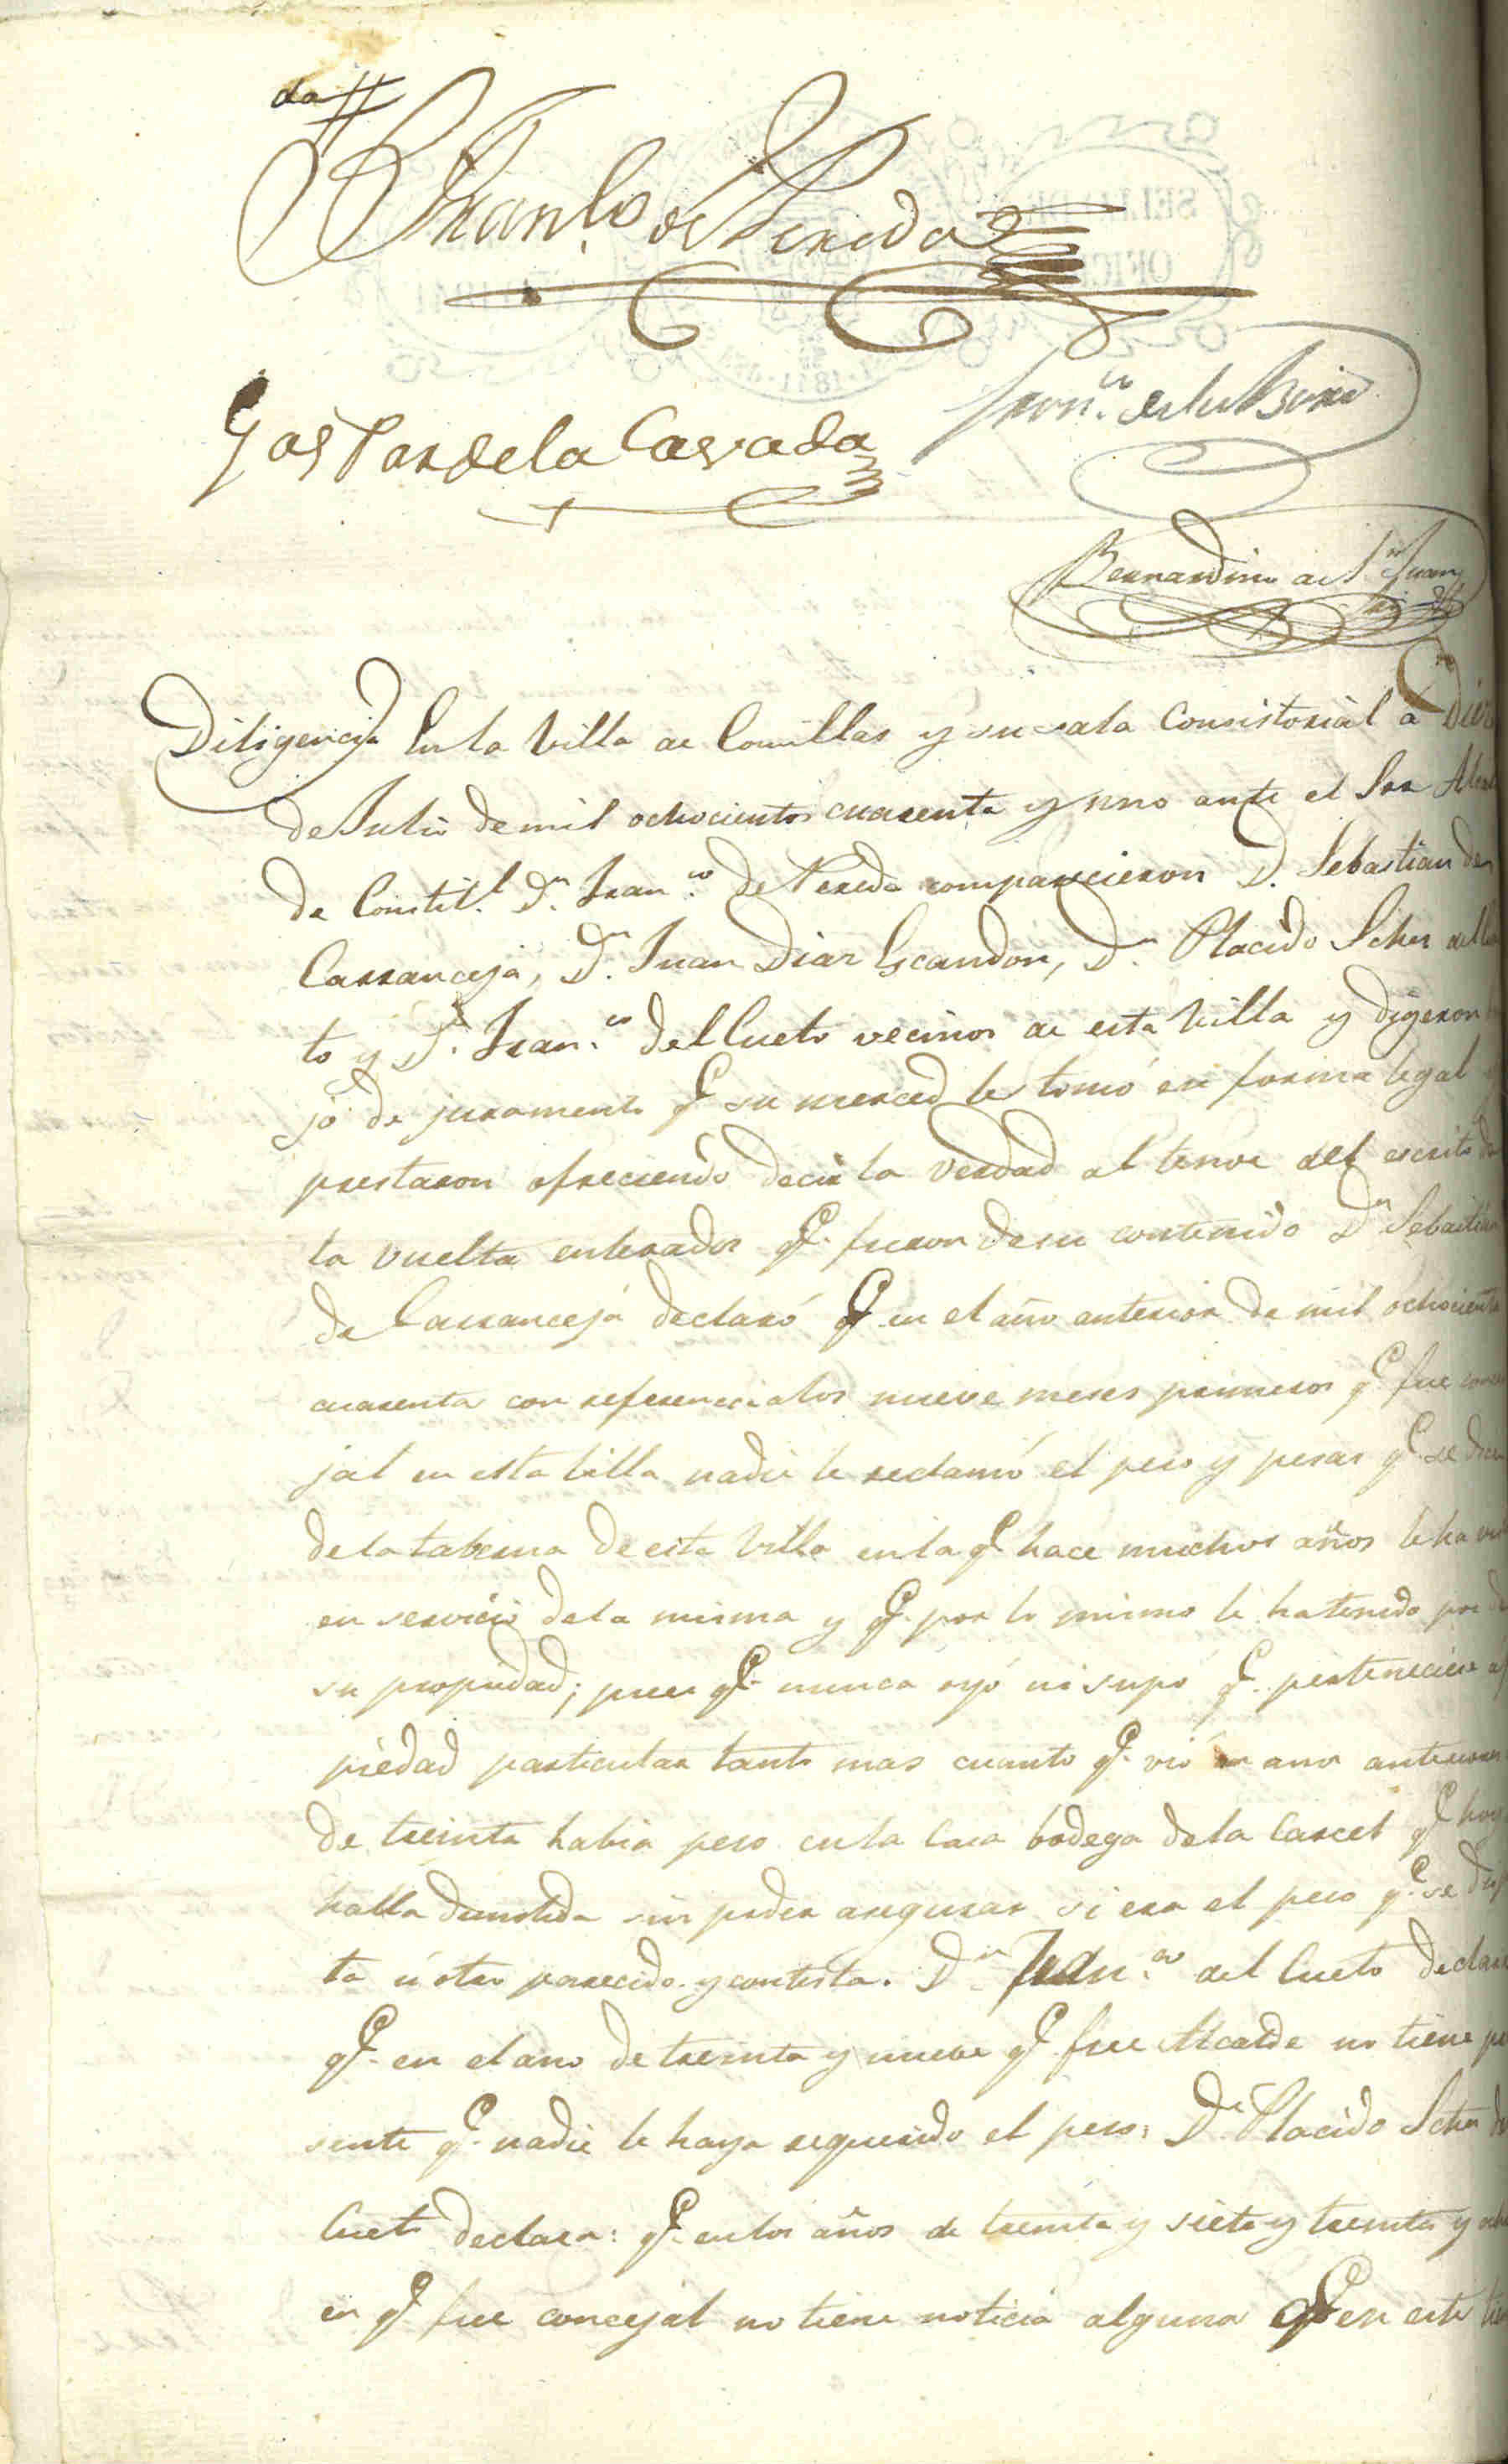 da #
Fran.co de Pereda
Gaspar de la Cavada
Fran.co de la
Bernardino de Sn Juan
Diligencia En la Villa de Comillas y su sala Consistorial a Diez
de Julio de mil ochocientos cuarenta y uno ante el Sor Alcal
de Constil.l Dn. Fran.co de Pereda comparecieron D. Sebastian de
Carranceja, Dn. Juan Diaz Escandon, Dn. Placido Schez del Cue
to y D. Fran.co del Cueto vecinos de esta Villa y digeron ba
jo de juramento q.e su merced les tomó en forma legal y
prestaron ofreciendo decir la verdad al tenor del escrito de
la vuelta enterados q.e fueron de su contenido Dn Sebastian
de Carranceja declaró q.e en el año anterior de mil ochocientos
cuarenta con referencia a los nueve meses primeros q.e fue conce
jal en esta Villa nadie le reclamó el peso y pesas q.e se dicen
de la taberna de esta Villa en la q.e hace muchos años le ha visto
en servicio de la misma y q.e por lo mismo le ha tenido por de
su propiedad; pues q.e nunca oyó ni supó q.e perteneciese a
piedad particular tanto mas cuanto q.e vió en anos anteriores
de treinta habia peso en la Casa bodega de la Carcel q.e hoy
halla demolida sin poder asegurar si era el peso q.e se disp
ta ú otro parecido y contesta. Dn Fran.co del Cueto declara
q.e en el ano de treinta y nueve q.e fue Alcalde no tiene pre
sente q.e nadie le haya requerido el peso; Dn Placido Schez del
Cueto declara: q.e en los años de treinta y siete y treinta y ocho
en q.e fue concejal no tiene noticia alguna q.e en este tiem